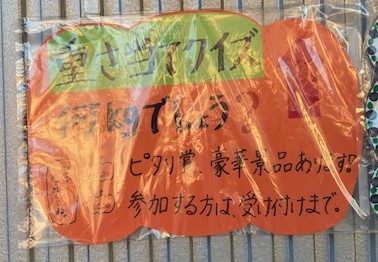 重さ当てクイズ
何kgでしょう?
ピタリ賞、豪華景品あります!
参加する方は、受け付けまで。